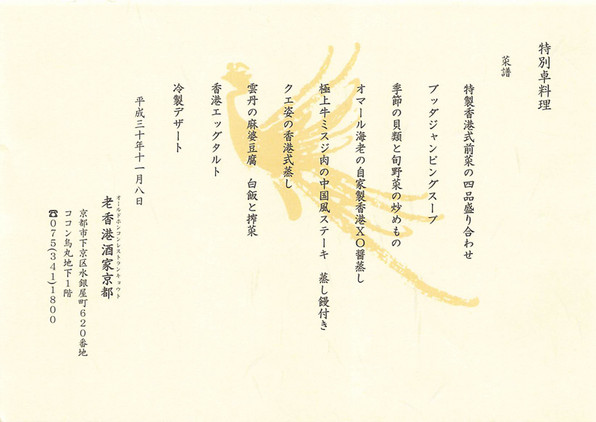 特別卓料理
菜譜
特製香港式前菜の四品盛り合わせ
ブッダジャンピングスープ
季節の貝類と旬野菜の炒めもの
オマール海老の自家製香港XO醤蒸し
極上牛ミスジ肉の中国風ステーキ 蒸し饅付き
クエ姿の香港式蒸し
雲丹の麻婆豆腐 白飯と搾菜
香港エッグタルト
冷製デザート
平成三十年十一月八日
オールドホンコンレストランキョウト
老香港酒家京都
京都市下京区水銀屋町620番地
ココン烏丸地下1階
☎075(341)1800